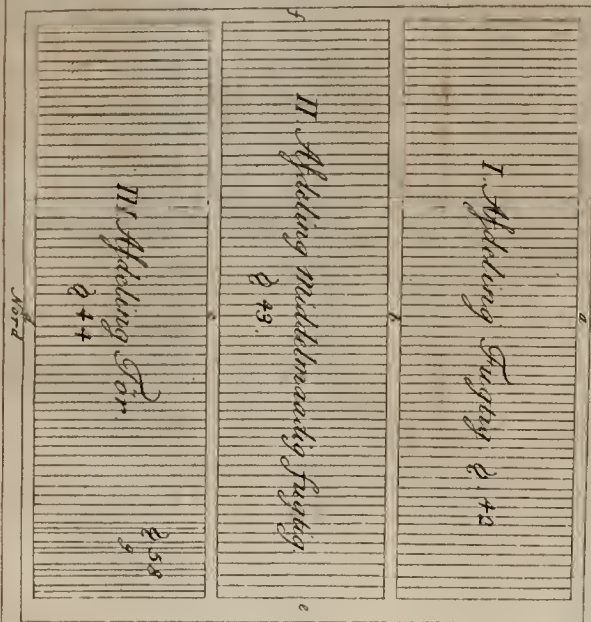 I. Afdeling Fugtig § 42
II. Afdeling Middelmaadig fugtig.
§ 43.
III. Afdeling Tör.
§ 44
§ 58
g
a
b
c
d
Nord
e
f